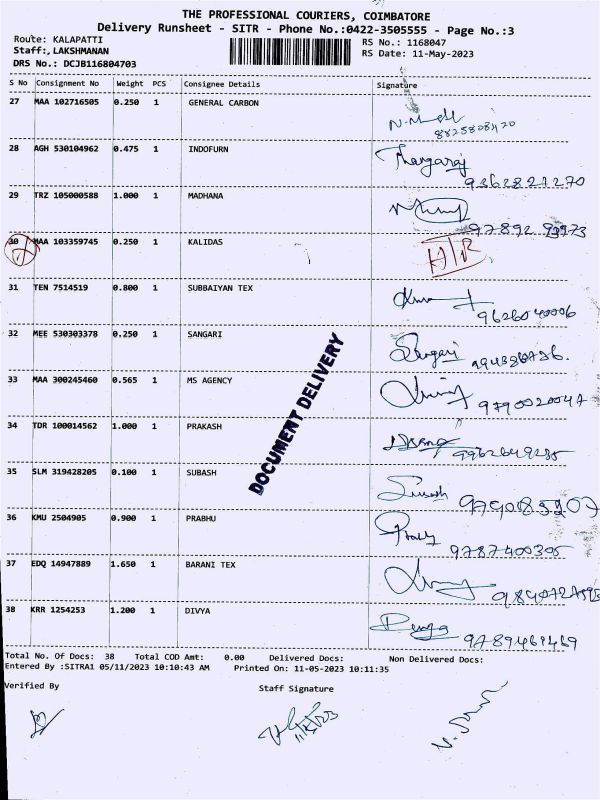 THE PROFESSIONAL COURIERS, COIMBATORE
Delivery Runsheet - SITR - Phone No.:0422-3505555 - Page No.:3
Route: KALAPATTI RS No.: 1168047
Staff:,LAKSHMANAN RS Date: 11-May-2023
DRS No.: DCJB116804703
S No Consignment No Weight PCS Consignee Details Signature
27 MAA 102716505 0.250 1 GENERAL CARBON
28 AGH 530104962 0.475 1 INDOFURN
Thangaraj
9362821270
29 TRZ 105000588 1.000 1 MADHANA
30 MAA 103359745 0.250 1 KALIDAS
31 TEN 7514519 0.800 1 SUBBAIYAN TEX
9626040006
32 MEE 530303378 0.250 1 SANGARI
Sangari
33 MAA 300245460 0.565 1 MS AGENCY
9790020047
34 TDR 100014562 1.000 1 PRAKASH
9962649235
35 SLM 319428205 0.100 1 SUBASH
36 KMU 2504905 0.900 1 PRABHU
9787400305
37 EDQ 14947889 1.650 1 BARANI TEX
38 KRR 1254253 1.200 1 DIVYA
9789461469
DOCUMENT DELIVERY
Total No. Of Docs: 38 Total COD Amt: 0.00 Delivered Docs: Non Delivered Docs:
Entered By :SITRA1 05/11/2023 10:10:43 AM Printed On: 11-05-2023 10:11:35
Verified By Staff Signature